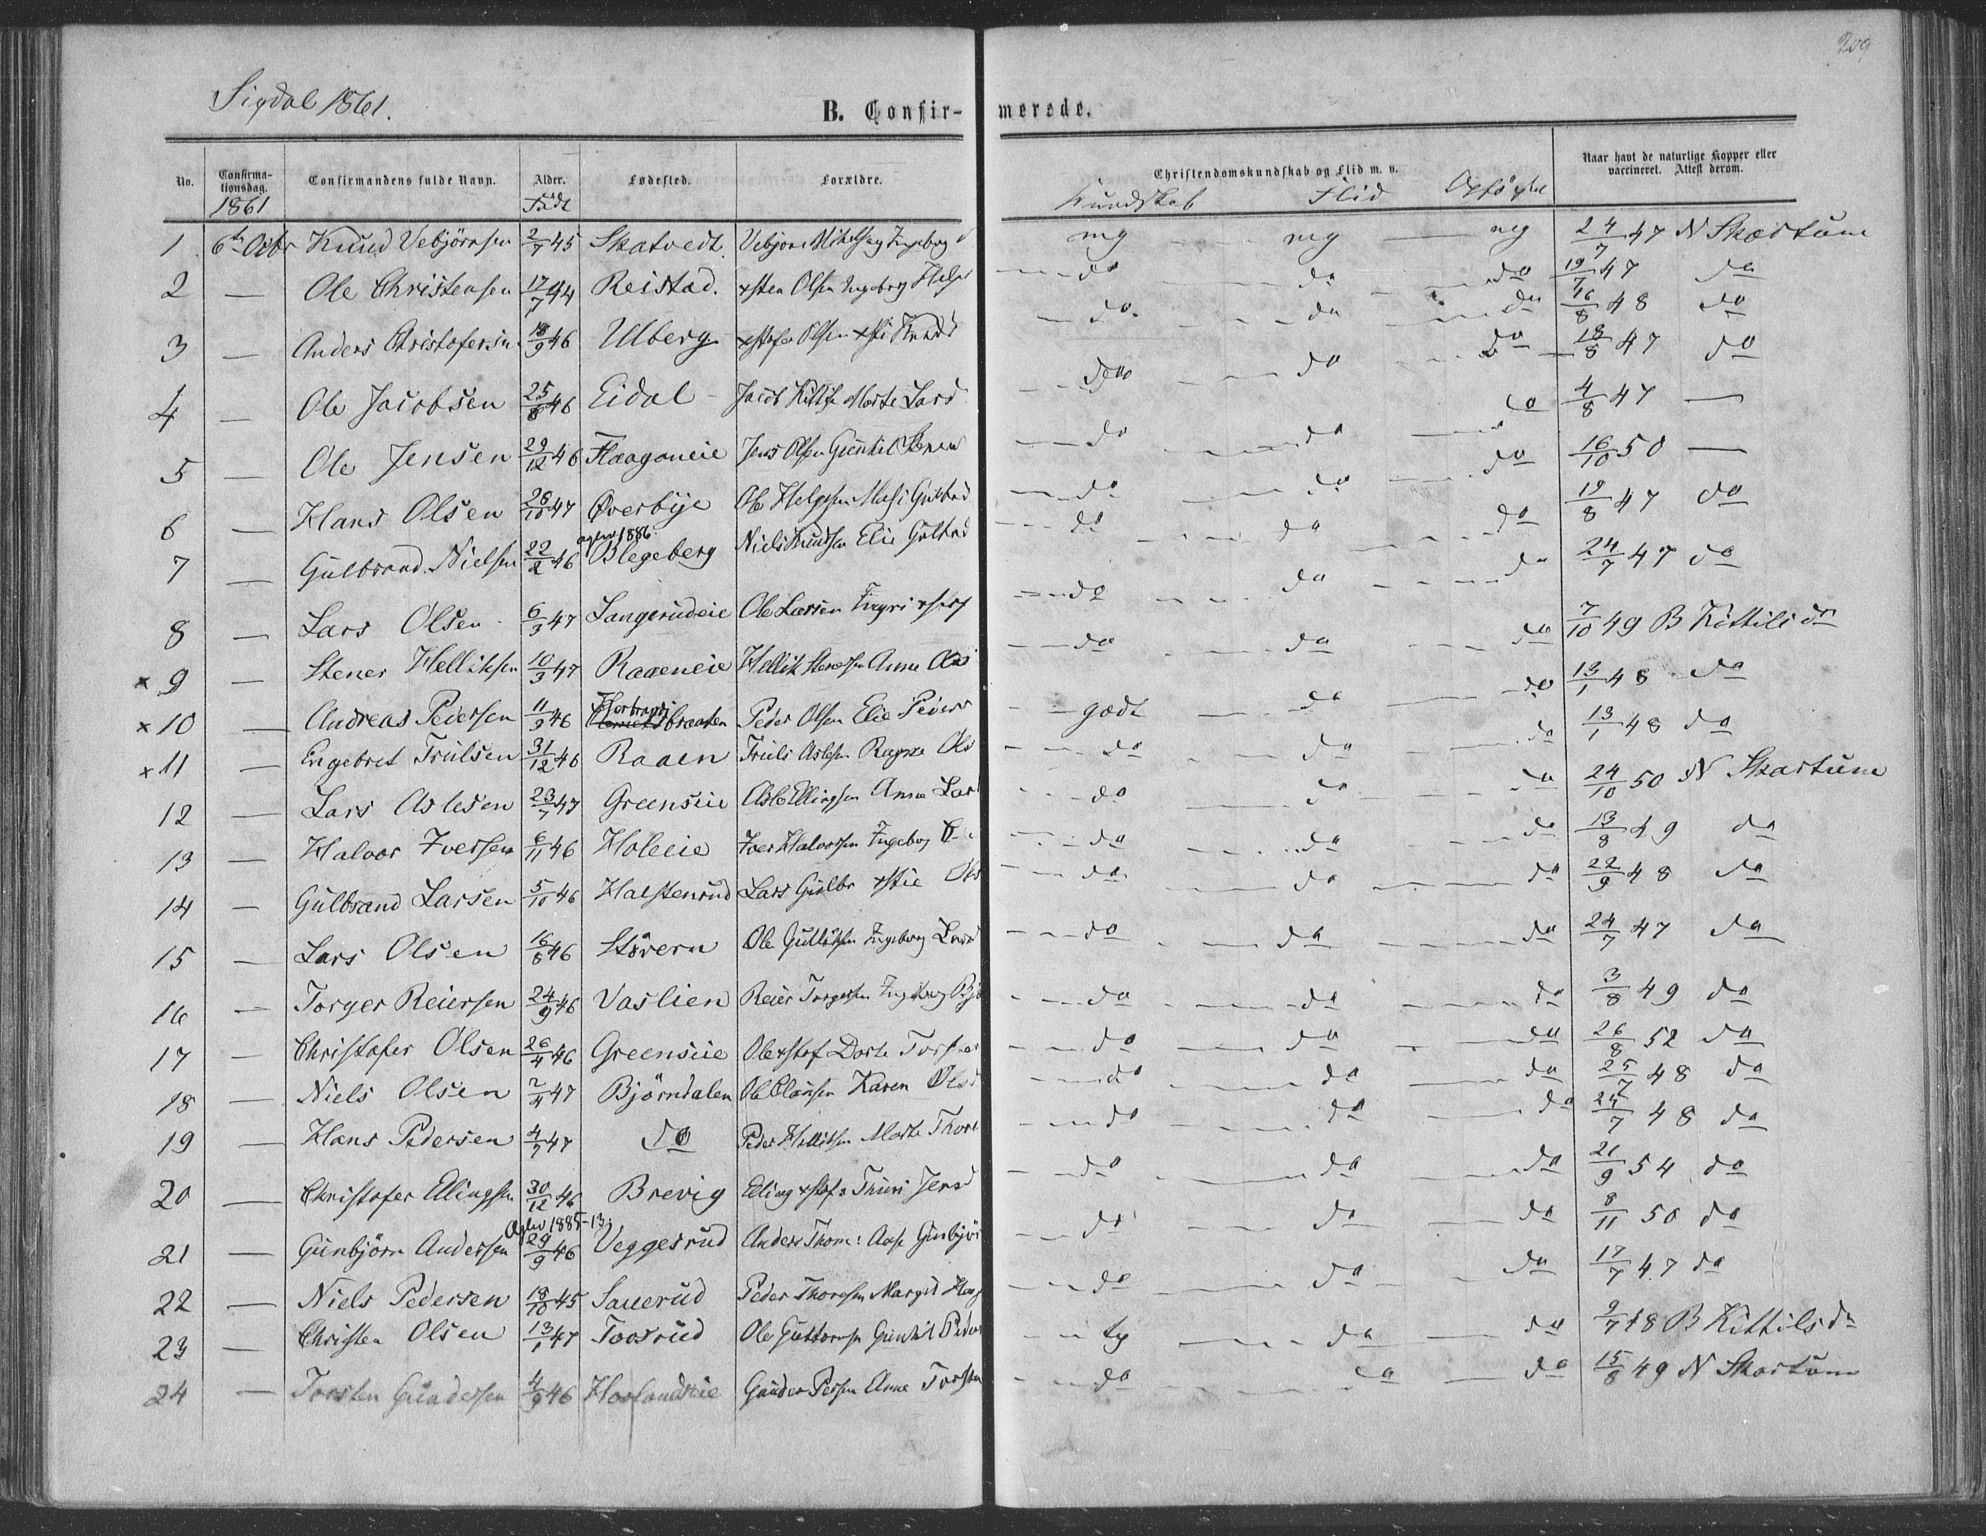 209
Sigdal 1861.
B. Confir- merede.
No. Confirmationsdag. Confirmandens fulde Navn. Alder. Fødested. Forældre. Christendomskundskab og Flid m. v. Naar havt de naturlige Kopper eller vaccineret. Attest derom.
1861 Født Kundskab Flid
1 6te Octbr Knud Vebjörnsen 2/7 45 Skatvedt. Vebjørn Ingeborg mg mg mg 24/7 47 N Skartum
2 — Ole Christensen 17/7 44 Reistad. xsten Olsen Ingeborg do do do 19/7 47 do
3 — Anders Christofersen 18/9 46 Ulberg xstofer Olsen xsti do do do 16/8 48 do
4 — Ole Jacobsen 25/8 46 Eidal Jacob Marte Lars do do do 18/8 47 do
5 — Ole Jensen 29/12 46 Haaganeie Jens Olsen Gunhil do do do 4/8 47 —
6 — Hans Olsen 26/10 47 Øverbye Ole Helgesen do do do 16/10 50 —
7 — Gulbrand Nielsen 22/2 46 Blegeberg Niels Knudsen Elie do do do 19/8 47 do
8 — Lars Olsen 6/3 47 Langerudeie Ole Larsen Ingri do do do 24/7 47 do
x 9 — Stener Helliksen 10/3 47 Raaeneie Hellik Stenersen Anne do do do 7/10 49 B Kittilsdr
x 10 — Andreas Pedersen 11/9 46 braaten Peder Olsen Elie Peders godt do do 13/1 48 do
x 11 — Engebret Trulsen 31/12 46 Raaen Truls Aslesen Ragne Ols do do do 13/1 48 do
12 — Lars Aslesen 23/7 47 Greenseie Asle Ellingsen Anne Lars do do do 24/10 50 N Skartum
13 — Halvor Iversen 6/11 46 Holeie Iver Halvorsen Ingeborg do do do 13/8 49 do
14 — Gulbrand Larsen 5/10 46 Halstenrud Lars Gulbr xstie Ols do do do 22/9 48 do
15 — Lars Olsen 16/8 46 Ole Ingeborg do do do 24/7 47 do
16 — Torger Reiersen 24/9 46 Vaslien Reier Torgersen Ingeborg do do do 3/8 49 do
17 — Christofer Olsen 26/4 46 Greenseie Ole xstof Dorte do do do 26/8 52 do
18 — Niels Olsen 2/4 47 Björndalen Ole Clausen Karen Olsd do do do 25/7 48 do
19 — Hans Pedersen 4/7 47 do Peder Helliksen Marte Thore do do do 24/7 48 do
20 — Christofer Ellingsen 30/12 46 Brevig Elling xstofs Thuri Jensd do do do 21/9 54 do
21 — Gunbjörn Andersen 29/9 46 Veggesrud Anders Thom: Aase Gunbjör do do do 8/11 50 do
22 — Niels Pedersen 18/10 45 Sauerud Peder Thoresen Margit do do do 17/7 47 do
23 — Christen Olsen 13/1 47 Toverud Ole Guttormsen Gunhil Peder tg do do 9/7 48 B Kittilsdr
24 — Torsten Gundersen 4/9 46 Gunder Persen Anne Torsten do do do 15/8 49 N Skartum